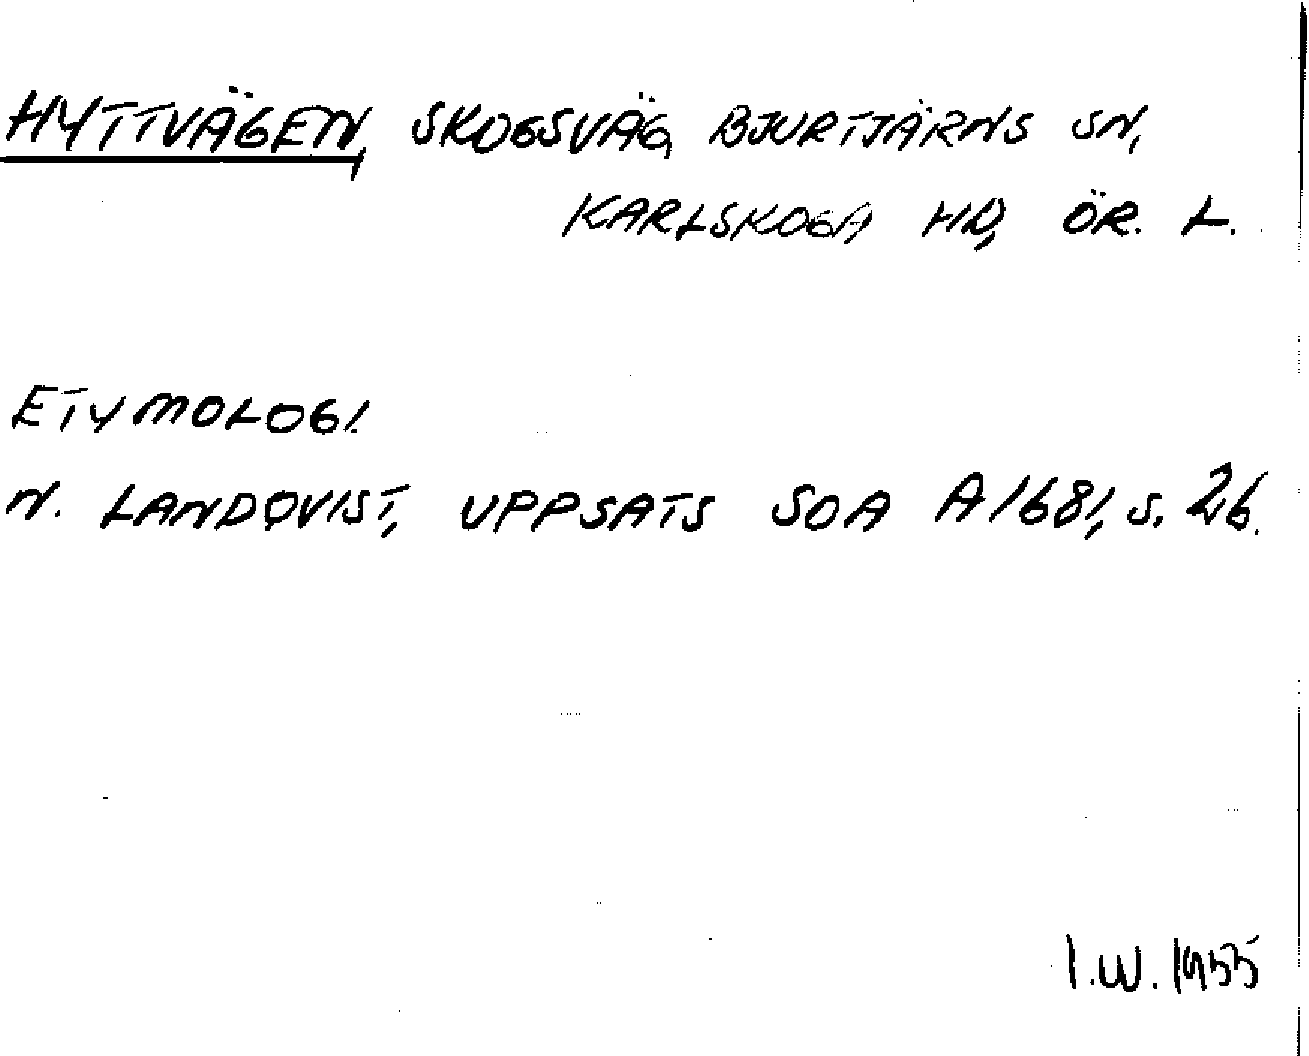 HYTTVÄGEN, SKOGSVÄG, BJURTJÄRNS SN,
KARLSKOGA HD, ÖR. L.
ETYMOLOGI.
N. LANDQVIST, UPPSATS SOA A1681, S. 26.
I.W. 1955